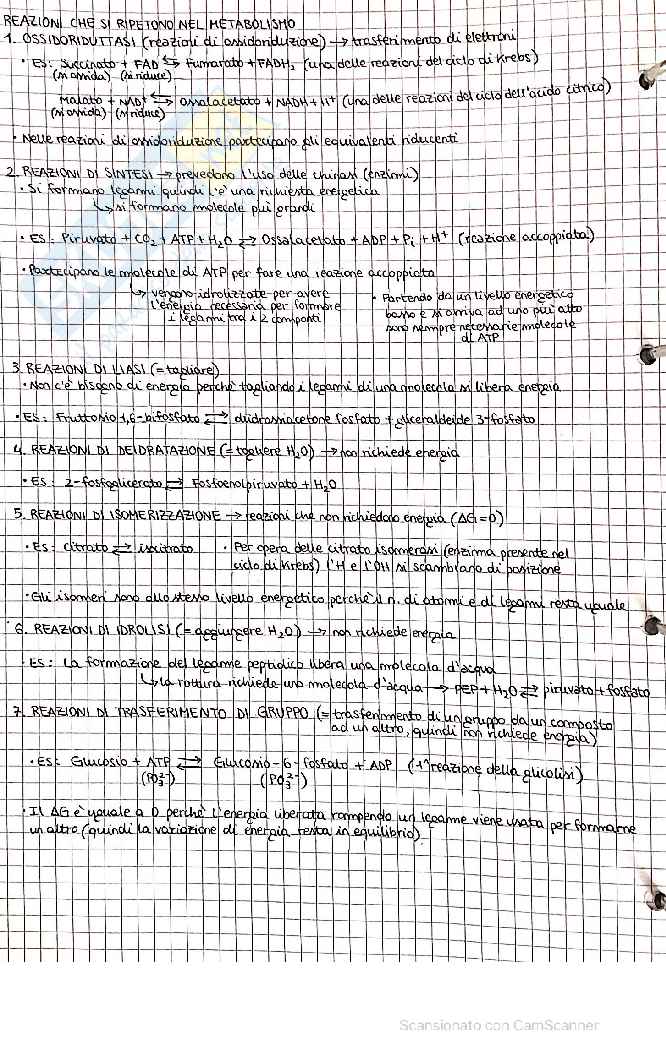 REAZIONI CHE SI RIPETONO NEL METABOLISMO
1. OSSIDORIDUTTASI (reazioni di ossidoriduzione) → trasferimento di elettroni
• ES: Succinato + FAD ⇆ Fumarato + FADH₂ (una delle reazioni del ciclo di Krebs)
(si ossida) (si riduce)
Malato + NAD⁺ ⇆ Ossalacetato + NADH + H⁺ (una delle reazioni del ciclo dell'acido citrico)
(si ossida) (si riduce)
• Nelle reazioni di ossidoriduzione partecipano gli equivalenti riducenti
2. REAZIONI DI SINTESI → prevedono l'uso delle chinasi (enzimi)
• Si formano legami quindi c'è una richiesta energetica
↳ si formano molecole più grandi
• ES: Piruvato + CO₂ + ATP + H₂O ⇄ Ossalacetato + ADP + Pi + H⁺ (reazione accoppiata)
• Partecipano le molecole di ATP per fare una reazione accoppiata
↳ vengono idrolizzate per avere
l'energia necessaria per formare
i legami tra i 2 composti
• Partendo da un livello energetico
basso e si arriva ad uno più alto
sono sempre necessarie molecole
di ATP
3. REAZIONI DI LIASI (= tagliare)
• Non c'è bisogno di energia perchè tagliando i legami di una molecola si libera energia
• ES: Fruttosio 1,6-bifosfato ⇄ diidrossiacetone fosfato + gliceraldeide 3-fosfato
4. REAZIONI DI DEIDRATAZIONE (= togliere H₂O) → non richiede energia
• ES: 2-fosfoglicerato ⇄ Fosfoenolpiruvato + H₂O
5. REAZIONI DI ISOMERIZZAZIONE → reazioni che non richiedono energia (ΔG=0)
• ES: citrato ⇄ isocitrato
• Per opera delle citrato isomerasi (enzima presente nel
ciclo di Krebs) l'H e l'OH si scambiano di posizione
• Gli isomeri sono allo stesso livello energetico perchè il n. di atomi e di legami resta uguale
6. REAZIONI DI IDROLISI (= aggiungere H₂O) → non richiede energia
• ES: La formazione del legame peptidico libera una molecola d'acqua
↳ la rottura richiede una molecola d'acqua → PEP + H₂O ⇄ piruvato + fosfato
7. REAZIONI DI TRASFERIMENTO DI GRUPPO (= trasferimento di un gruppo da un composto
ad un altro, quindi non richiede energia)
• ES: Glucosio + ATP ⇄ Glucosio-6-fosfato + ADP (1ª reazione della glicolisi)
(PO₃²⁻) (PO₃²⁻)
• Il ΔG è uguale a 0 perchè l'energia liberata rompendo un legame viene usata per formarne
un altro (quindi la variazione di energia resta in equilibrio)
Scansionato con CamScanner